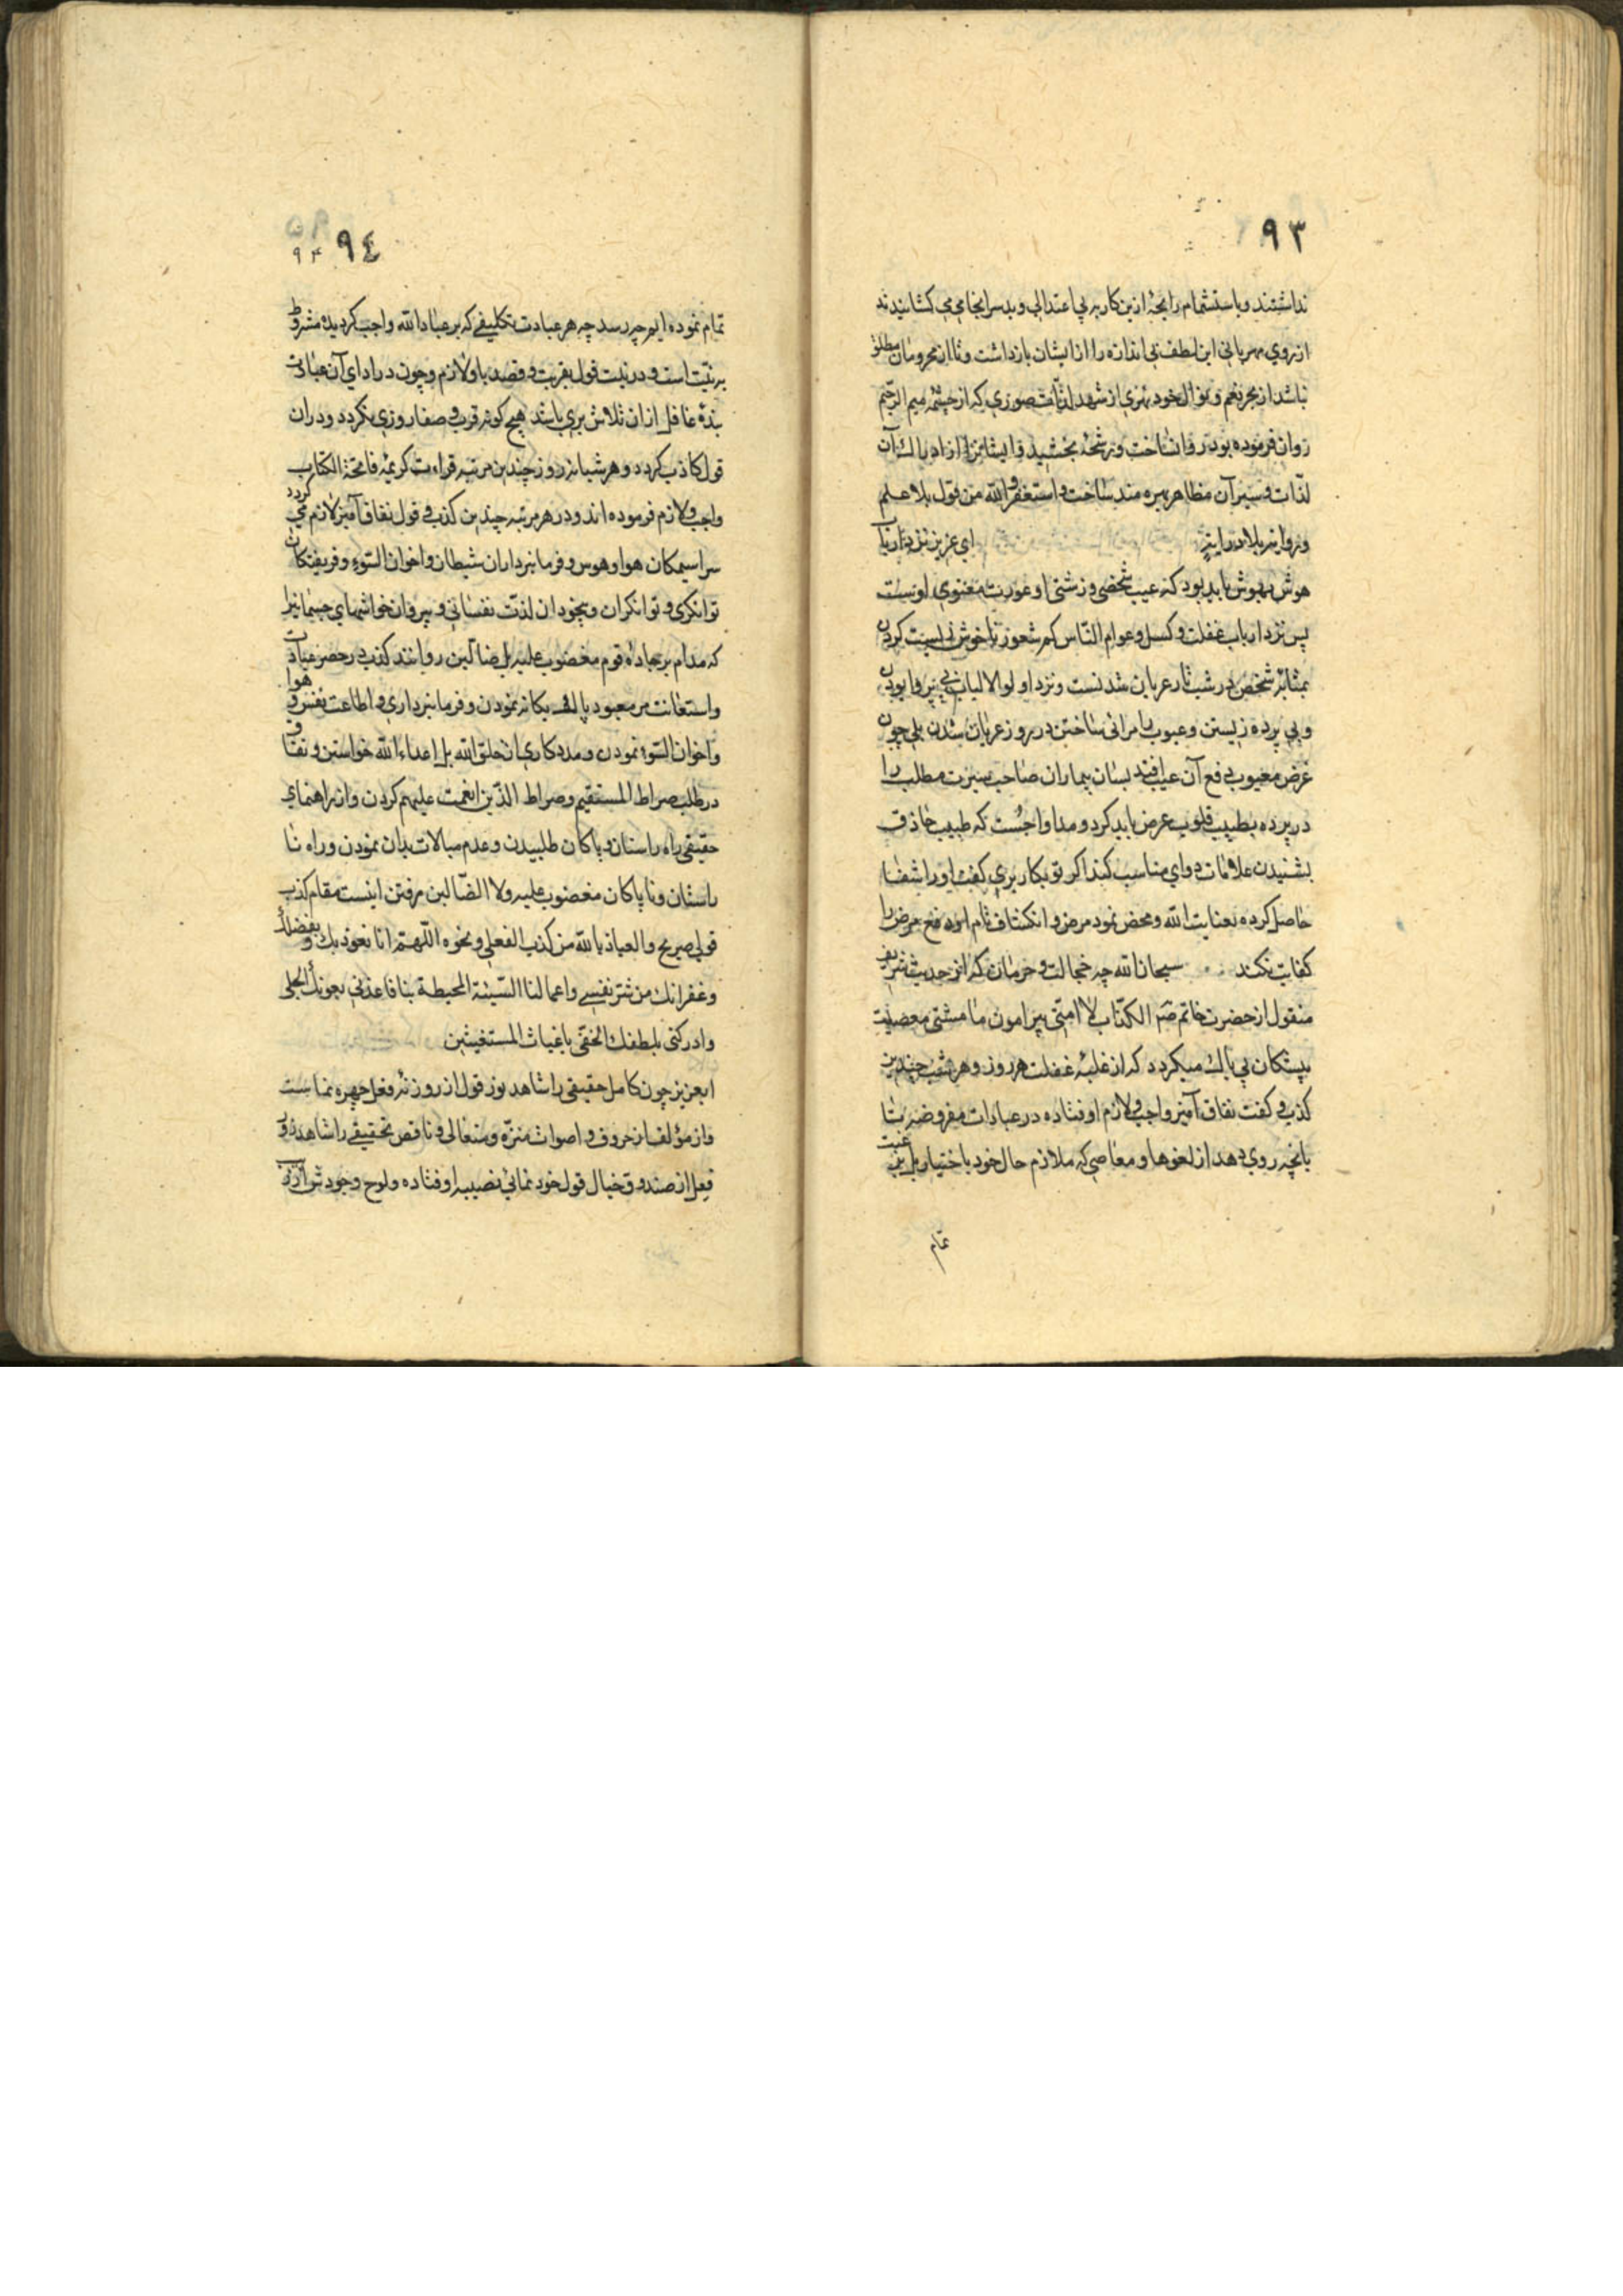 ۹۳
نداشتند و باستشمام رایحهٔ ازین کار به بی اعتدالی و بد سرانجامی می کشانیدند
از روی مهربانی این لطف بی اندازه را از ایشان بازداشت و تا از محرومان مطلق
نباشند از بحر نعم و نوال خود نهری از شهد لذّات صوری که از چشمه میم الرحیم
روان فرموده بود روان ساخت و رشحهٔ بخشید و ایشانرا از ادراک آن
لذّات و سیر آن مظاهر بهره مند ساخت و استغفر الله من قول بلا علم
و روایة بلا درایة ای عزیز نزد ارباب
هوش بهوش باید بود که عیب شخصی و زشتی او عورت معنوی اوست
پس نزد ارباب غفلت و کسل و عوام الناس کم شعور ناخوش زیست کردن
بمثابهٔ شخص در شب تار عریان شدنست و نزد اولوالالباب بی پروا بودن
و بی پرده زیستن و عیوب را مرائی ساختن در روز عریان شدن بلی چون
غرض معیوب دفع آن عیب افتد بسان بیماران صاحب سیرت مطلب را
در پرده بطبیب قلوب عرض باید کرد و مداوا جست که طبیب حاذق
بشنیدن علامات دوای مناسب کند اگر تو بکار بری کفت او را شفا
حاصل کرده بعنایت الله و محض نمود مرض و انکشاف تام او دفع مرض را
کفایت نکند سبحان الله چه خجالت و حرمان که از حدیث شریف
منقول از حضرت خاتم ص الکذّاب لا امتی پیرامون ما مشتی معصیت
پیشکان بی باک میکردد که از غلبهٔ غفلت هر روز و هر شب چندین
کذب و کفت نفاق آمیز واجب و لازم اوفتاده در عبادات مفروضه بتا
بانچه روی دهد از لغوها و معاصی که ملازم حال خود باختیار بل بر غبت
تمام
۹٤
۹۴
تمام نموده ایم چه رسد چه هر عبادت تکلیفی که بر عباد الله واجب کردیده مشروط
به نیّت است و در نیّت قول بقربت و قصد باو لازم و چون در ادای آن عبادت
بندهٔ غافل از ان تلاش بری باشد هیچ کونه قرب و صفا روزی نکردد و در ان
قول کاذب کردد و هر شبانه روز چندین مرتبه قراءت کریمهٔ فاتحة الکتاب
واجب و لازم فرموده اند و در هر مرتبه چندین کذب و قول نفاق آمیز لازم می کردد
سراسیمکان هوا و هوس و فرمانبرداران شیطان و اخوان السّوء و فریفتکان
توانکری و توانکران و بیخودان لذّت نفسانی و پیروان خواشهای جسمانیرا
که مدام بر جادهٔ قوم مغضوب علیه بل ضالّین روانند کذب در حصر عبادت
و استعانت من معبود پاک بیکانه نمودن و فرمانبرداری و اطاعت نفس و هوا
و اخوان السّوء نمودن و مددکاری از خلق الله بل اعداء الله خواستن و نفاق
در طلب صراط المستقیم و صراط الّذین انعمت علیهم کردن و از راهنمای
حقیقی راه راستان و پاکان طلبیدن و عدم مبالات بدان نمودن و راه نا
راستان و ناپاکان مغضوب علیه و لا الضّالین رفتن اینست مقام کذب
قولی صریح و العیاذ بالله من کذب الفعلی و نحوه اللّهمّ انا نعوذ بک و بفضلک
و غفرانک من شر نفسی و اعمالنا السّیئة المحیطة بنا فاعذنی بعونک الجلی
و ادرکنی بلطفک الخفّی یا غیاث المستغیثین
ایعزیز چون کامل حقیقی را شاهد بوز قول از روزنهٔ فعل چهره نماست
و از مؤلف از حروف و اصوات منزّه و متعالی و ناقص تحقیقی را شاهد ذوق
فعل از صندوق خیال قول خود نمائی نصیبه اوفتاده و لوح وجودش از